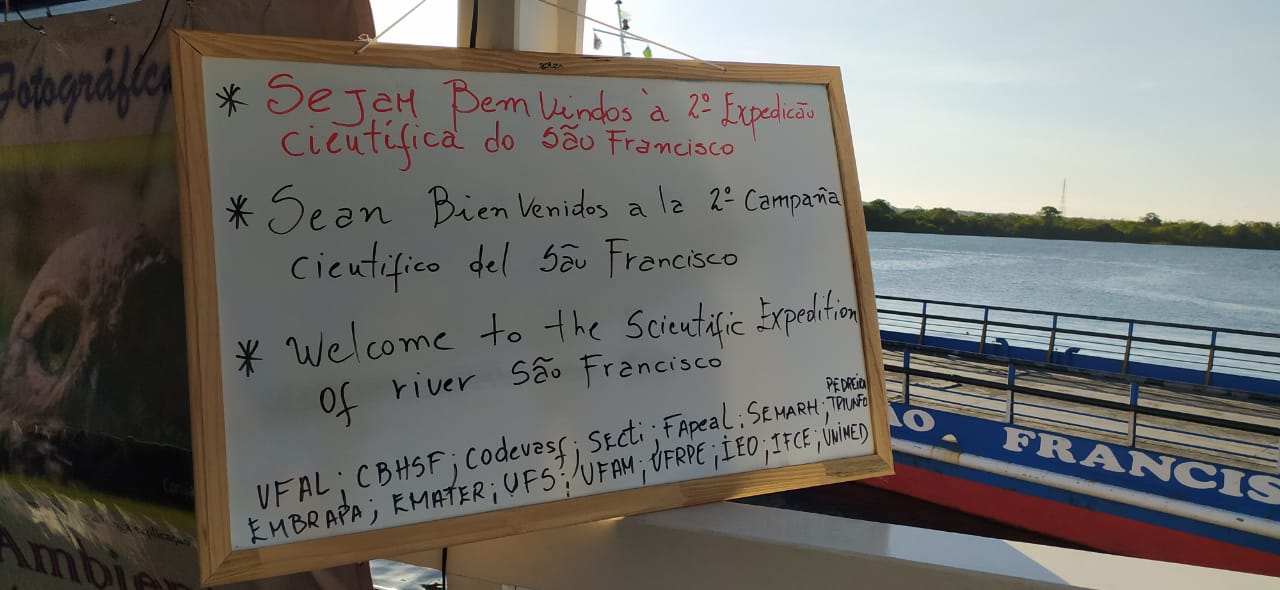 Fotográfica
* Sejam Bem Vindos à 2º Expedicão
científica do São Francisco
* Sean Bien Venidos a la 2º Campaña
cientifico del São Francisco
* Welcome to the Scientific Expedition
of river São Francisco
UFAL; CBHSF; Codevasf; SEcti; FApeal; SEMARH; PEDREIRA TRIUNFO
EMBRAPA; EMATER; UFS; UFAM; UFRPE; IEO; IFCE; UNIMED
Ambien
ÃO FRANCIS